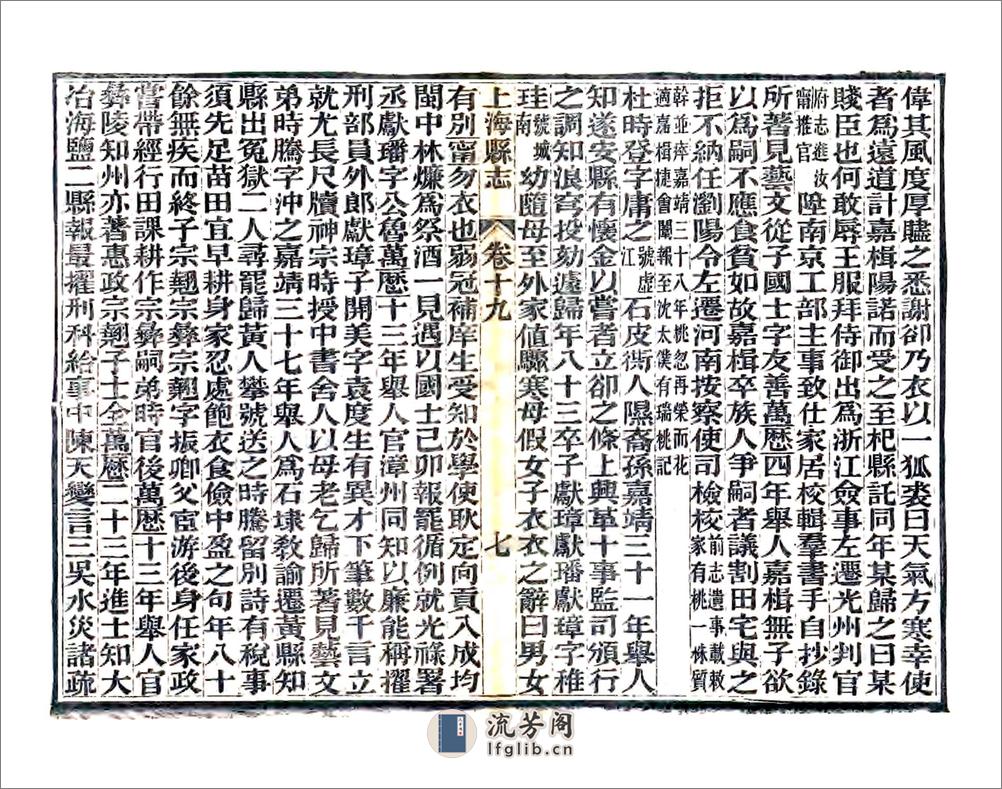 偉其風度厚贐之悉謝卻乃衣以一狐裘曰天氣方寒幸使
者為遠道計嘉楫陽諾而受之至杞縣託同年某歸之曰某
賤臣也何敢辱王服拜侍御出為浙江僉事左遷光州判官
府志進汝
甯推官
陞南京工部主事致仕家居校輯羣書手自抄錄
所著見藝文從子國士字友善萬歷四年舉人嘉楫無子欲
以為嗣不應食貧如故嘉楫卒族人爭嗣者議割田宅與之
拒不納任瀏陽令左遷河南按察使司檢校
前志遺事載敕
家有桃一株質
幹並瘁嘉靖三十八年桃忽再榮而花
適嘉楫捷會闈報至沈太僕有瑞桃記
杜時登字庸之
號虛
江
石皮衖人隰裔孫嘉靖三十一年舉人
知遂安縣有懷金以嘗者立卻之條上興革十事監司頒行
之調知浪穹投劾遽歸年八十三卒子獻璋獻璠獻璋字稚
珪
號城
南
幼隨母至外家值驟寒母假女子衣衣之辭曰男女
有別甯勿衣也弱冠補庠生受知於學使耿定向貢入成均
閩中林燫為祭酒一見遇以國士己卯報罷循例就光祿署
丞獻璠字公魯萬歷十三年舉人官漳州同知以廉能稱擢
刑部員外郎獻璋子開美字袁度生有異才下筆數千言立
就尤長尺牘神宗時授中書舍人以母老乞歸所著見藝文
弟時騰字沖之嘉靖三十七年舉人為石埭教諭遷黃縣知
縣出冤獄二人尋罷歸黃人攀號送之時騰留別詩有稅事
須先足苗田宜早耕身家忍處飽衣食儉中盈之句年八十
餘無疾而終子宗翹宗彝宗翹字振卿父宦游後身任家政
嘗帶經行田課耕作宗彝嗣弟時官後萬歷十三年舉人官
彝陵知州亦著惠政宗翹子士全萬歷二十三年進士知大
冶海鹽二縣報最擢刑科給事中陳天變言三吳水災諸疏
上海縣志
卷十九
七
流芳阁
lfglib.cn